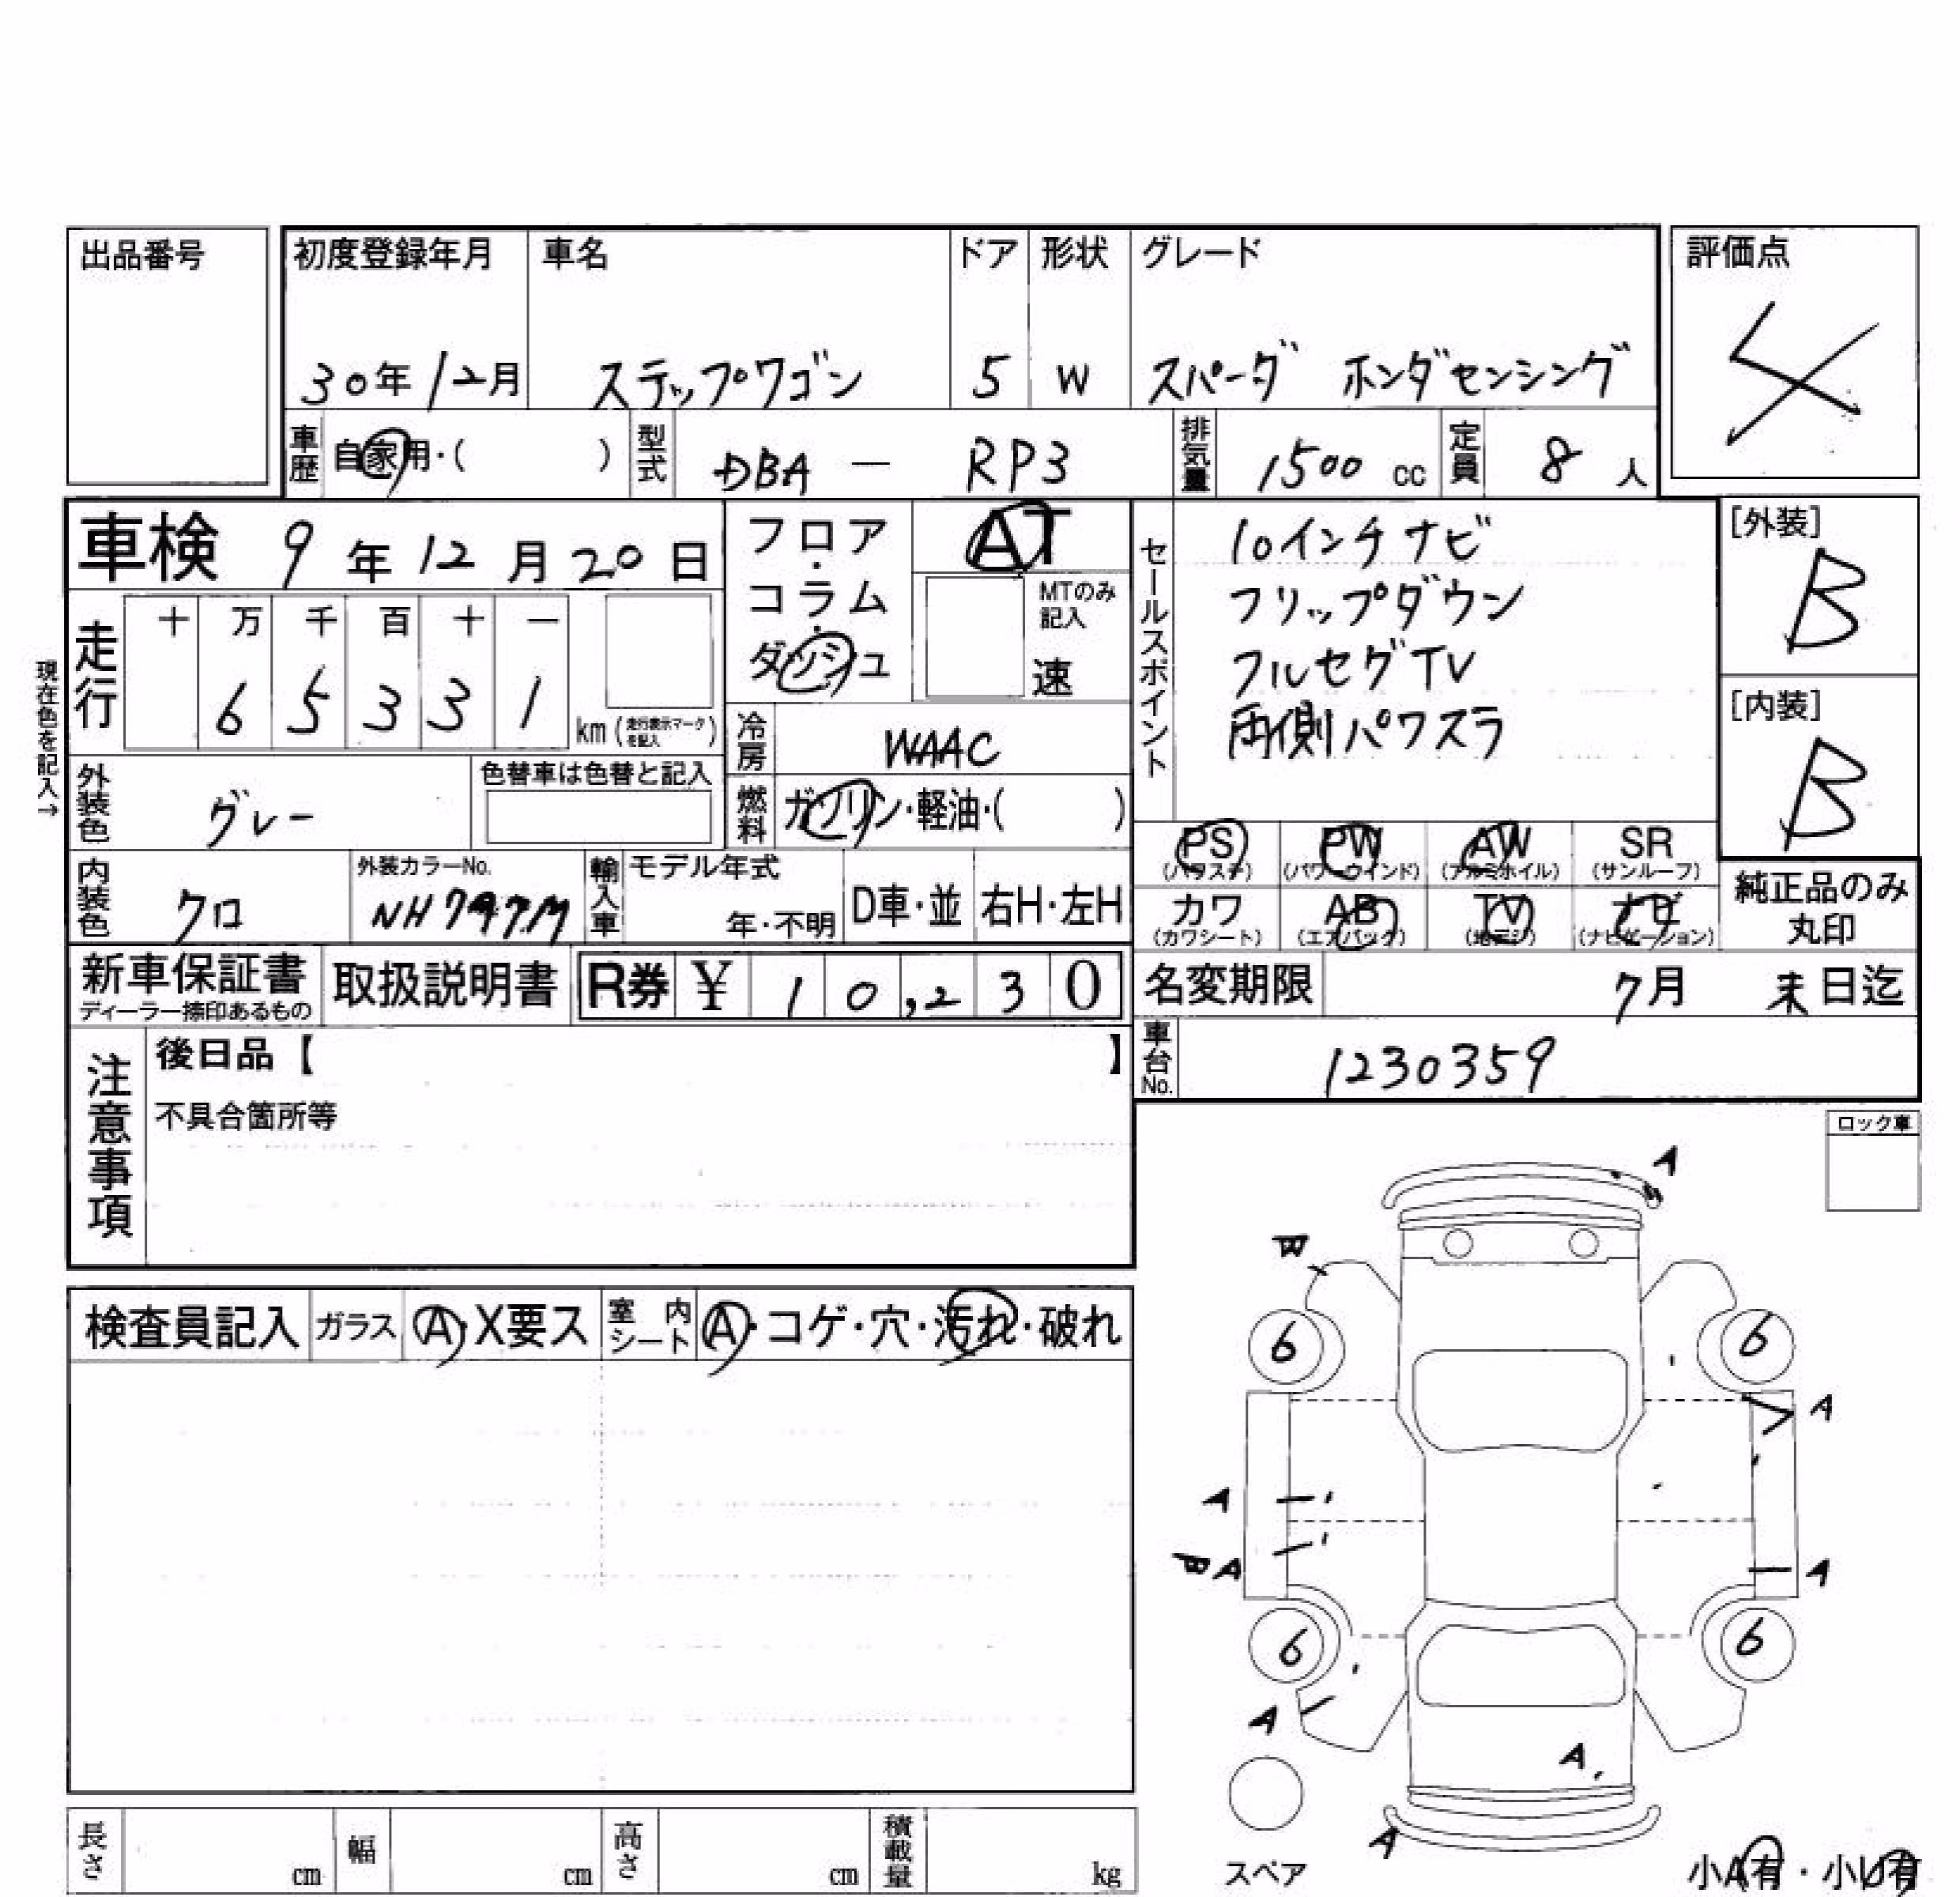 出品番号
初度登録年月 車名 ドア 形状 グレード
30年12月 ステップワゴン 5 W スパーダ ホンダセンシング
評価点
4
車歴 自家用・( ) 型式 DBA — RP3 排気量 1500 cc 定員 8 人
車検 9年12月20日
フロア・コラム・ダッシュ
AT
MTのみ記入
速
セールスポイント
10インチナビ
フリップダウン
フルセグTV
両側パワスラ
[外装]
B
[内装]
B
現在色を記入→
走行
十 万 千 百 十 一
6 5 3 3 1 km (走行表示マークを記入)
冷房 WAAC
外装色 グレー 色替車は色替と記入
燃料 ガソリン・軽油・( )
PS (パワステ) PW (パワーウインド) AW (アルミホイル) SR (サンルーフ)
カワ (カワシート) AB (エアバック) TV (地デジ) ナビ (ナビゲーション)
純正品のみ丸印
内装色 クロ 外装カラーNo. NH797M 輸入車 モデル年式 年・不明 D車・並 右H・左H
新車保証書 ディーラー捺印あるもの 取扱説明書 R券 ¥ 10,230
名変期限 7月 末日迄
車台No. 1230359
注意事項
後日品【 】
不具合箇所等
ロック車
検査員記入 ガラス A・X要ス 室内シート A・コゲ・穴・汚れ・破れ
A
W
6 6
A
A
A
A
6 6
A
A
A
スペア
小A有・小U有
長さ cm 幅 cm 高さ cm 積載量 kg